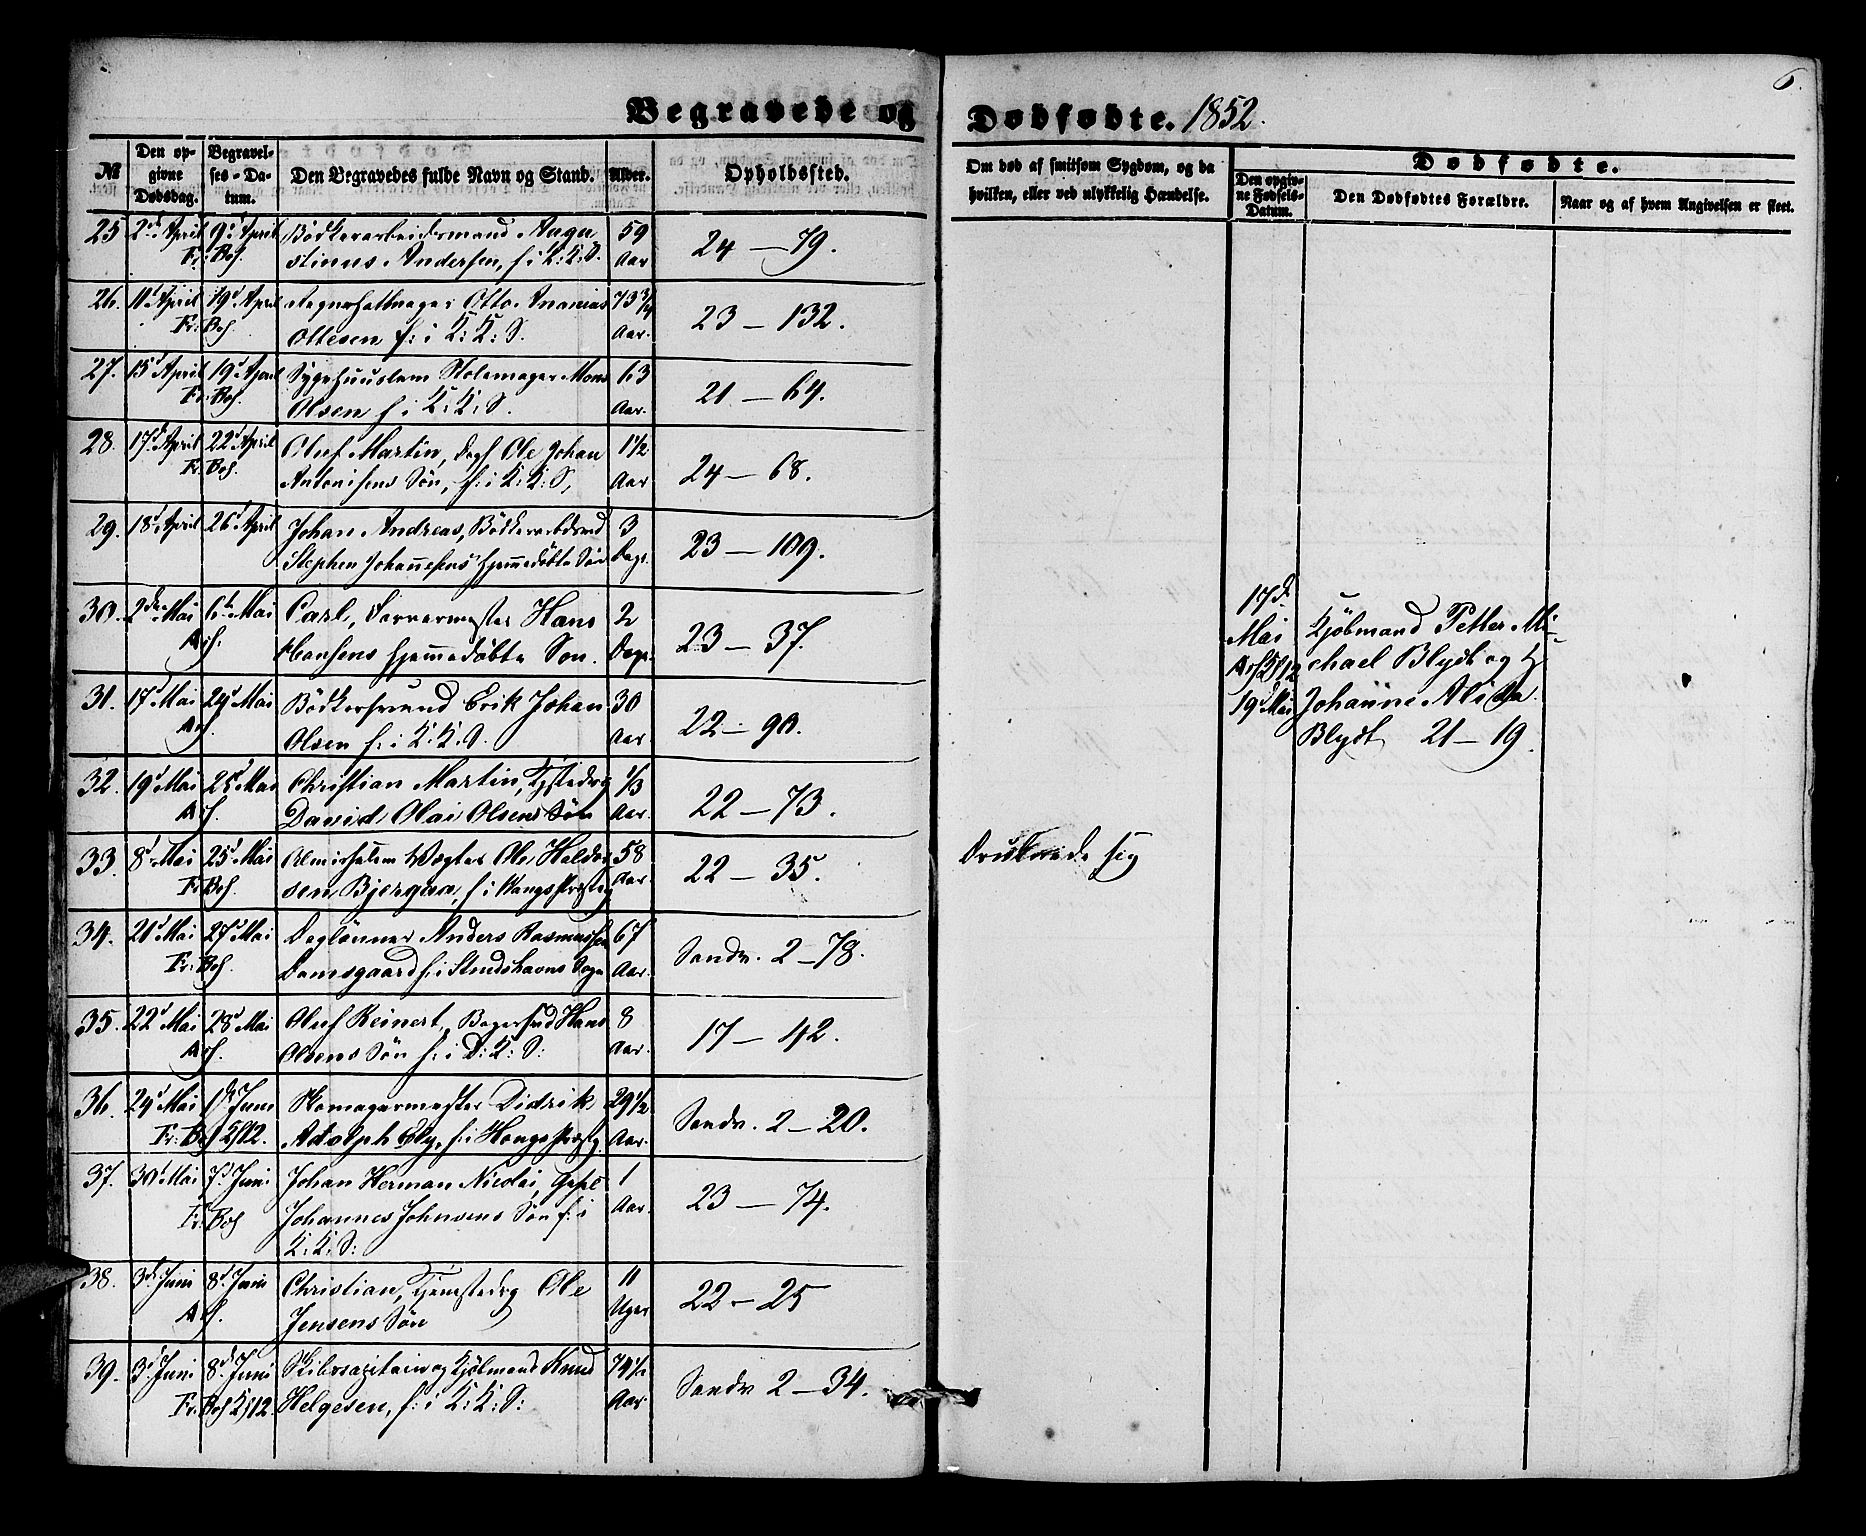 Begravede og
Dødfødte. 1852.
6.
No
Den opgivne Dødsdag.
Begravelses-Datum.
Den Begravedes fulde Navn og Stand.
Alder.
Opholdssted.
Om død af smitsom Sygdom, og da
hvilken, eller ved ulykkelig Hændelse.
Dødfødte.
Den opgivne Fødsels-Datum.
Den Dødfødtes Forældre.
Naar og af hvem Angivelsen er skeet.
25 2d April 9d April Bødkerarbeidsmand Augu 59
Fr: Bos. stinus Andersen, f: i K: K: S. Aar 24 — 79.
26. 11d April 19d April Otto Ananias 73 3/4
Fr: Bos. Ottesen f: i K: K: S. Aar. 23 — 132.
27. 15d April 19d April Sygehuuslem Stolemager Mons 63
Fr: Bos. Olsen f: i K: K: S. Aar. 21 — 64.
28. 17d April 22d April Oluf Martin, Dagl Ole Johan 1 1/2
Fr: Bos. Antonisens Søn, f: i K: K: S, Aar 24 — 68.
29. 18d April 26d April Johan Andreas, Bødkerarbdsmd 3
Stephen Johannesens hjemmedøbte Søn Dage. 23 — 109.
30. 2den Mai 6te Mai Carl, Farvermester Hans 2
As. Hansens hjemmedøbte Søn. Dage. 23 — 37.
31. 17d Mai 24d Mai Bødkersvend Erik Johan 30
As. Olsen f: i K: K: S. Aar. 22 — 90.
32. 19d Mai 25d Mai Christian Martin, Tjstedrg 1/3
As. David Olai Olsens Søn Aar. 22 — 73.
33. 8d Mai 25d Mai Almislem Vægter Ole Haldor 58
Fr: Bos. sen Bjergum, f: i Vangs Præstg Aar. 22 — 35.
Druknede sig
34. 21d Mai 27d Mai Daglønner Anders Rasmussen 67
Fr: Bos. Damsgaard f: i Stridshavns Sogn Aar. Sandv. 2 — 78.
35. 22d Mai 28d Mai Oluf Reinert, Bagersvd Hans 8
As. Olsens Søn f: i D: K: S: Aar. 17 — 42.
36. 24d Mai 1ste Juni Skomagermester Didrik 29 1/2
Fr: Bos 2/12. Adolph Ely, f: i Haugs Præstg. Aar. Sandv. 2 — 20.
37. 30d Mai 7d Juni Johan Herman Nicolai, 1
Fr: Bos Johannes Johnsens Søn f: i Aar. 23 — 74.
K: K: S:
38. 3d Juni 8d Juni Christian, Tjenstedrg Ole 11
As. Jensens Søn Uger 22 — 25
39. 3d Juni 8d Juni Skibscapitain og Kjøbmand Knud 74 1/2
Fr: Bos 2/12. Helgesen, f: i K: K: S: Aar. Sandv 2 — 34.
17d
Mai
19d Mai
Kjøbmand Petter Mi-
chael Blydt og H
Johanne Alida
Blydt 21 — 19.